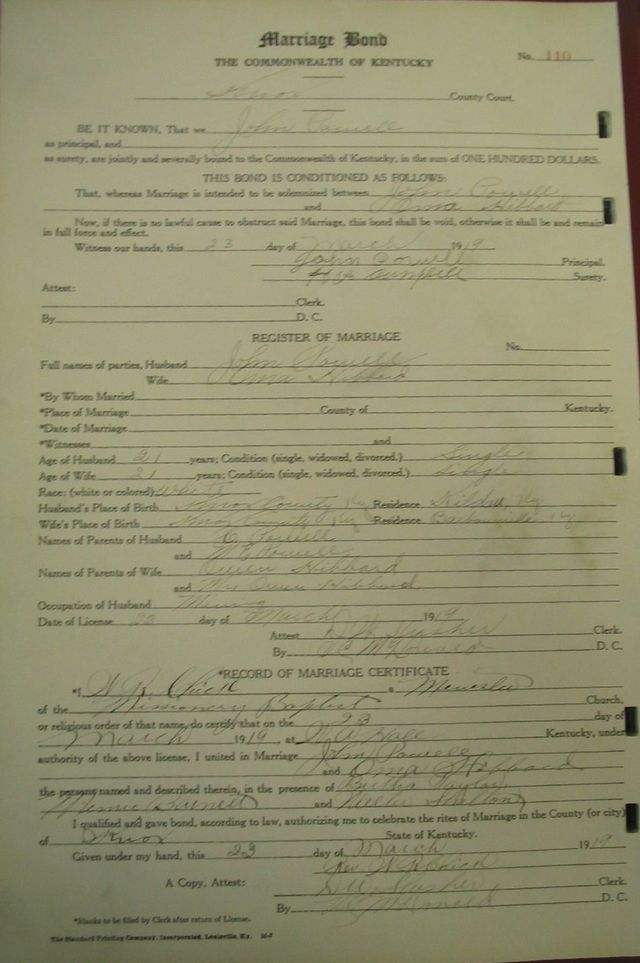 Marriage Bond
THE COMMONWEALTH OF KENTUCKY
No. 110
Knox County Court.
BE IT KNOWN, That we John Powell
as principal, and
as surety, are jointly and severally bound to the Commonwealth of Kentucky, in the sum of ONE HUNDRED DOLLARS.
THIS BOND IS CONDITIONED AS FOLLOWS:
That, whereas Marriage is intended to be solemnized between John Powell
and Oma Hibbard
Now, if there is no lawful cause to obstruct said Marriage, this bond shall be void, otherwise it shall be and remain
in full force and effect.
Witness our hands, this 23 day of March 1919
John Powell Principal.
Surety.
Attest:
Clerk.
By D. C.
REGISTER OF MARRIAGE
No.
Full names of parties, Husband John Powell
Wife Oma Hibbard
*By Whom Married
*Place of Marriage County of Kentucky.
*Date of Marriage
*Witnesses and
Age of Husband 21 years; Condition (single, widowed, divorced.) Single
Age of Wife 21 years; Condition (single, widowed, divorced.) Single
Race: (white or colored) White
Husband's Place of Birth Knox County Ky Residence Kildav Ky
Wife's Place of Birth Knox County Ky Residence Barbourville Ky
Names of Parents of Husband Powell
and Powell
Names of Parents of Wife Owen Hibbard
and Mrs Owen Hibbard
Occupation of Husband Mining
Date of License 23 day of March 1919
Attest Clerk.
By D. C.
*RECORD OF MARRIAGE CERTIFICATE
*I, W. R. Chick a Minister
of the Missionery Baptist Church,
or religious order of that name, do certify that on the 23 day of
March 1919, at Kentucky, under
authority of the above license, I united in Marriage John Powell
and Oma Hibbard
the persons named and described therein, in the presence of Bertha Taylor
and Shelton
I qualified and gave bond, according to law, authorizing me to celebrate the rites of Marriage in the County (or city)
of Knox State of Kentucky.
Given under my hand, this 23 day of March 1919
W R Chick
A Copy, Attest: Clerk.
By D. C.
*Blanks to be filled by Clerk after return of License.
The Standard Printing Company, Incorporated, Louisville, Ky.